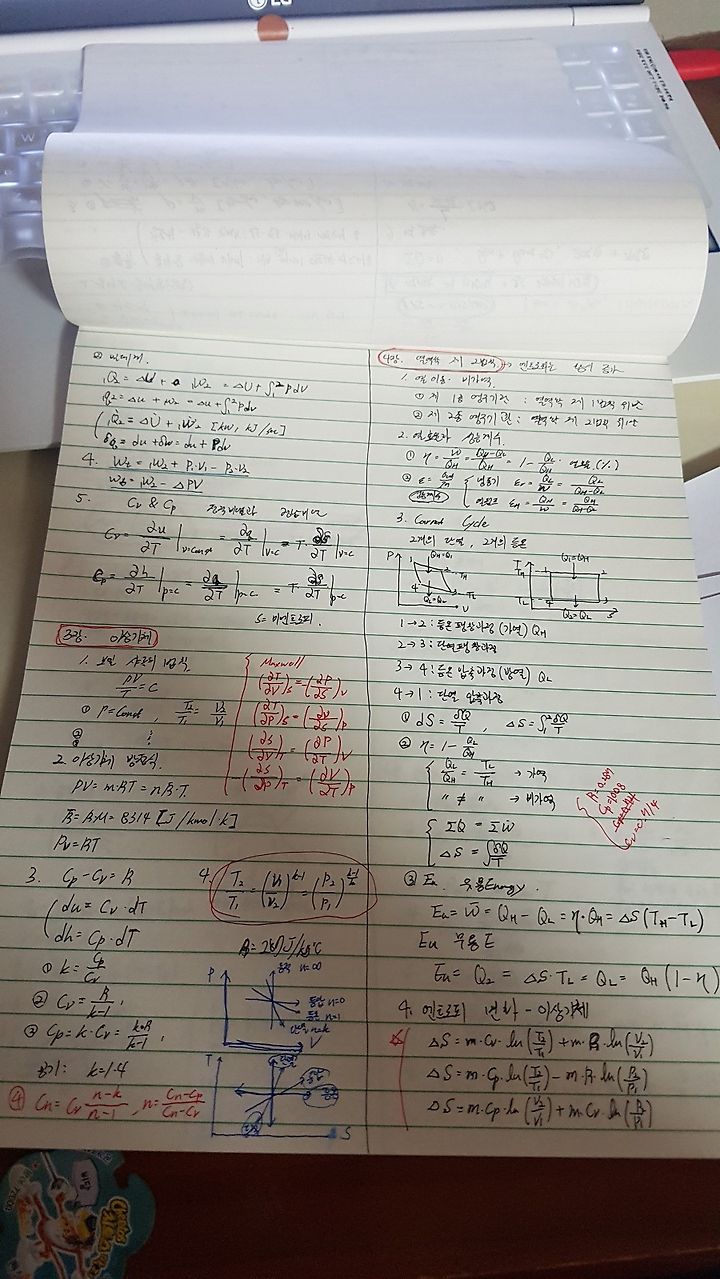 LG
W
② 밀폐계.
₁Q₂ = ΔU + ₁W₂ = ΔU + ∫₁² PdV
₁q₂ = Δu + ₁w₂ = Δu + ∫₁² Pdv
₁Q̇₂ = ΔU̇ + ₁Ẇ₂ [kW, kJ/sec]
δq = du + δw = du + Pdv
4. Wt = ₁W₂ + P₁V₁ - P₂V₂
5. Cv & Cp 정적비열과 정압비열
Cv = ∂u/∂T |v=const = ∂q/∂T |v=c = T·∂s/∂T |v=c
Cp = ∂h/∂T |p=c = ∂q/∂T |p=c = T ∂s/∂T |p=c
s = 비엔트로피.
3장. 이상기체
1. 보일 샤를의 법칙
PV/T = C
① P=Const, T₂/T₁ = V₂/V₁
②
③
2. 이상기체 방정식.
PV = m·RT = n·R̄·T.
R̄ = R·M = 8314 [J/kmol·K]
Pv = RT
Maxwell
(∂T/∂V)s = -(∂P/∂S)v
(∂T/∂P)s = (∂V/∂S)p
(∂S/∂V)T = (∂P/∂T)v
-(∂S/∂P)T = (∂V/∂T)p
3. Cp - Cv = R
du = Cv·dT
dh = Cp·dT
① k = Cp/Cv
② Cv = R/(k-1),
③ Cp = k·Cv = k·R/(k-1),
공기: k=1.4
④ Cn = Cv (n-k)/(n-1), n = (Cn-Cp)/(Cn-Cv)
4. T₂/T₁ = (V₁/V₂)^(k-1) = (P₂/P₁)^((k-1)/k)
R = 287 J/kg°C
P
정적 n=∞
정압 n=0
등온 n=1
단열 n=k
V
T
단열
정압
등온
S
4장. 열역학 제 2법칙 → 엔트로피는 항상 증가
1. 열 이동 - 비가역.
① 제 1종 영구기관 : 열역학 제 1법칙 위반
② 제 2종 영구기관 : 열역학 제 2법칙 위반
2. 열효율과 성능계수.
① η = W/QH = (QH-QL)/QH = 1 - QL/QH · 열효율(%)
성능계수
냉동기 εr = QL/W = QL/(QH-QL)
열펌프 εH = QH/W = QH/(QH-QL)
3. Carnot Cycle
2개의 단열, 2개의 등온
P
1
QH=Q₁
2
TH
4
3
TL
QL=Q₂
V
T
TH
TL
Q₁=QH
1
2
4
3
Q₂=QL
S
1→2 : 등온팽창과정 (가열) QH
2→3 : 단열팽창과정
3→4 : 등온 압축과정 (방열) QL
4→1 : 단열 압축과정
① dS = δQ/T, ΔS = ∫₁² δQ/T
② η = 1 - QL/QH
QL/QH = TL/TH → 가역
" ≠ " → 비가역
ΣQ = ΣW
ΔS = ∫δQ/T
R=0.287
Cp=1.008
③ Ea 유용Energy.
Ea = W = QH - QL = η·QH = ΔS(TH-TL)
Eu 무용E
Eu = Q₂ = ΔS·TL = QL = QH(1-η)
4. 엔트로피 변화 - 이상기체
ΔS = m·Cv·ln(T₂/T₁) + m·R·ln(V₂/V₁)
ΔS = m·Cp·ln(T₂/T₁) - m·R·ln(P₂/P₁)
ΔS = m·Cp·ln(V₂/V₁) + m·Cv·ln(P₂/P₁)